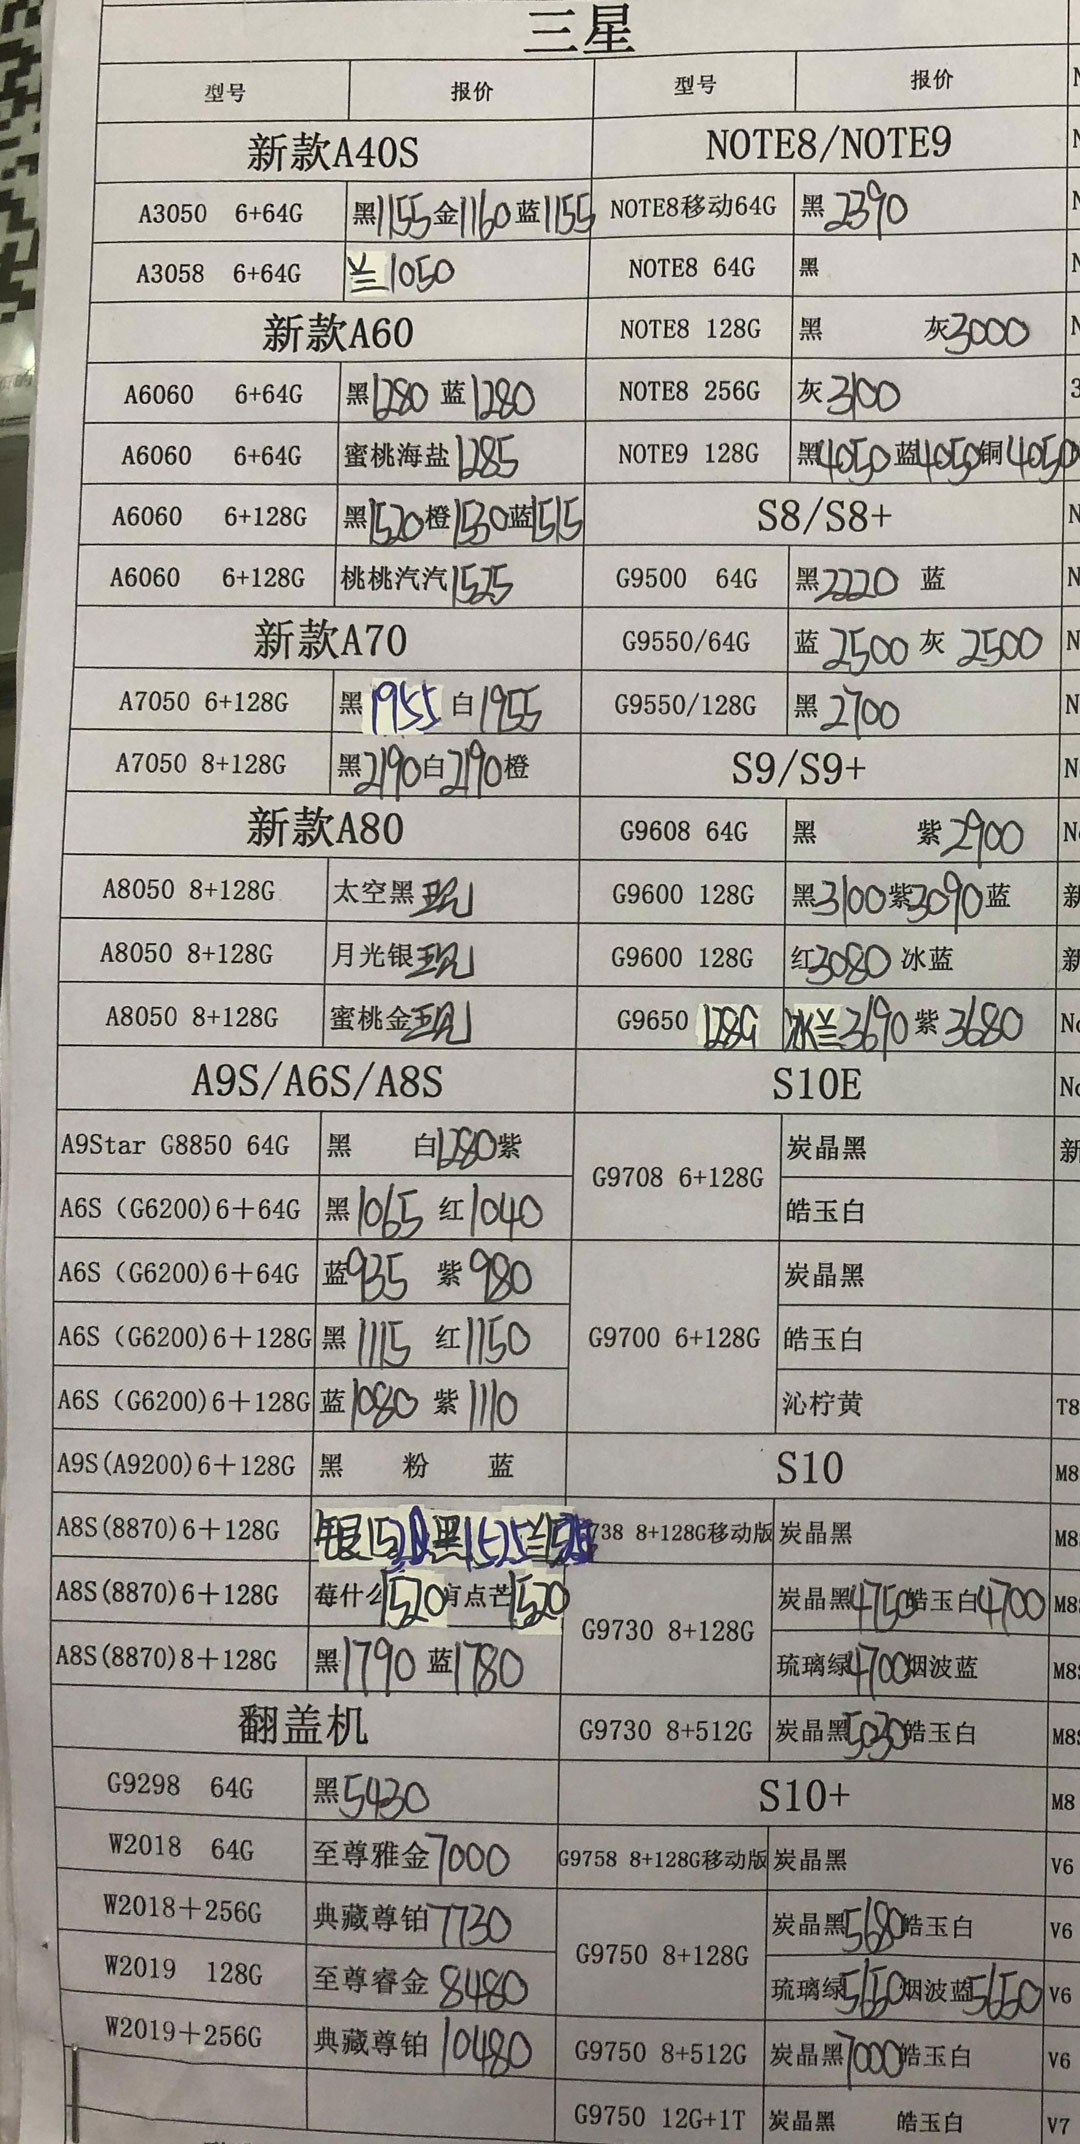 三星
型号 报价 型号 报价
新款A40S NOTE8/NOTE9
A3050 6+64G 黑1155金1160蓝1155 NOTE8移动64G 黑2390
A3058 6+64G 兰1050 NOTE8 64G 黑
新款A60 NOTE8 128G 黑 灰3000
A6060 6+64G 黑1280 蓝1280 NOTE8 256G 灰3100
A6060 6+64G 蜜桃海盐1285 NOTE9 128G 黑4050蓝4050铜4050
A6060 6+128G 黑1520橙1530蓝1515 S8/S8+
A6060 6+128G 桃桃汽汽1525 G9500 64G 黑2220 蓝
新款A70 G9550/64G 蓝2500 灰2500
A7050 6+128G 黑1955 白1955 G9550/128G 黑2700
A7050 8+128G 黑2190白2190橙 S9/S9+
新款A80 G9608 64G 黑 紫2900
A8050 8+128G 太空黑现 G9600 128G 黑3100紫3090蓝
A8050 8+128G 月光银现 G9600 128G 红3080 冰蓝
A8050 8+128G 蜜桃金现 G9650 128G 冰兰3690 紫3680
A9S/A6S/A8S S10E
A9Star G8850 64G 黑 白1280紫 G9708 6+128G 炭晶黑
A6S (G6200)6+64G 黑1065 红1040 皓玉白
A6S (G6200)6+64G 蓝935 紫980 G9700 6+128G 炭晶黑
A6S (G6200)6+128G 黑1115 红1150 皓玉白
A6S (G6200)6+128G 蓝1080 紫1110 沁柠黄
A9S(A9200)6+128G 黑 粉 蓝 S10
A8S(8870)6+128G 银152 黑1525兰 738 8+128G移动版 炭晶黑
A8S(8870)6+128G 莓什么1520有点芒1520 G9730 8+128G 炭晶黑4750皓玉白4700
A8S(8870)8+128G 黑1790 蓝1780 琉璃绿4700烟波蓝
翻盖机 G9730 8+512G 炭晶黑5030皓玉白
G9298 64G 黑5430 S10+
W2018 64G 至尊雅金7000 G9758 8+128G移动版 炭晶黑
W2018+256G 典藏尊铂7730 G9750 8+128G 炭晶黑5680皓玉白
W2019 128G 至尊睿金8480 琉璃绿5650烟波蓝5650
W2019+256G 典藏尊铂10480 G9750 8+512G 炭晶黑7000皓玉白
G9750 12G+1T 炭晶黑 皓玉白